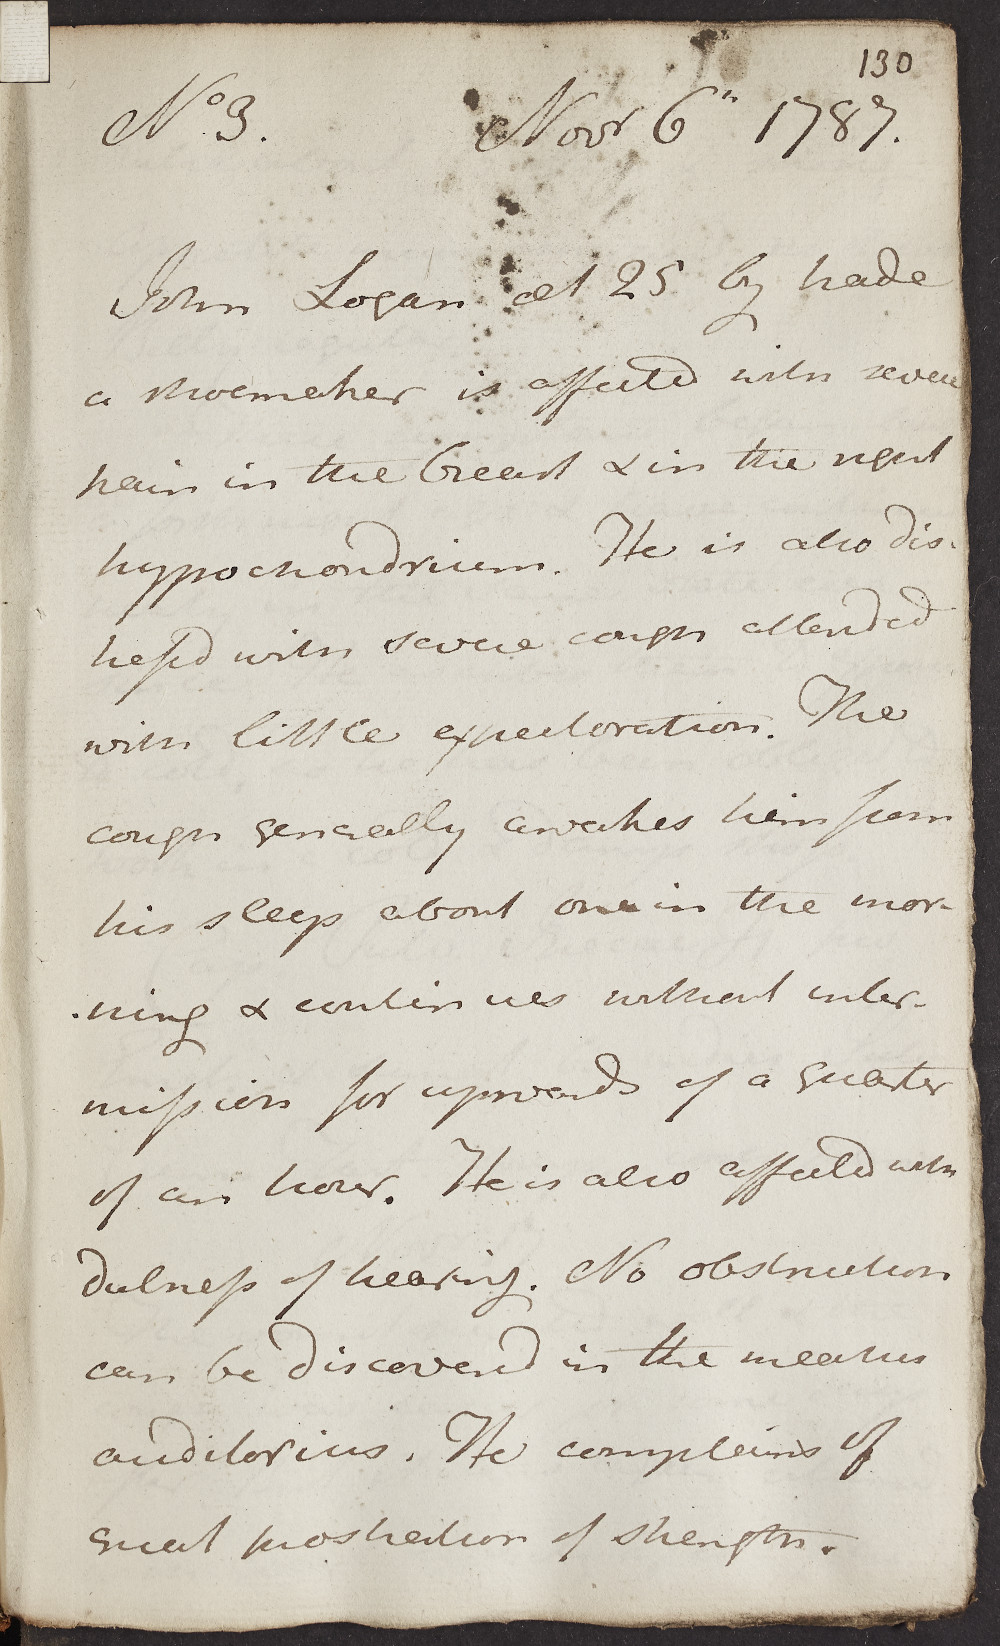 130
No 3. Novr 6th 1787.
John Logan æt 25 by trade
a shoemaker is affected with severe
pain in the breast & in the right
hypochondrium. He is also dis-
tressd with severe cough attended
with little expectoration. The
cough generally awakes him from
his sleep about one in the mor-
-ning & continues without inter-
mission for upwards of a quarter
of an hour. He is also affected with
dulness of hearing. No obstruction
can be discovered in the meatus
auditorius. He complains of
great prostration of strength.